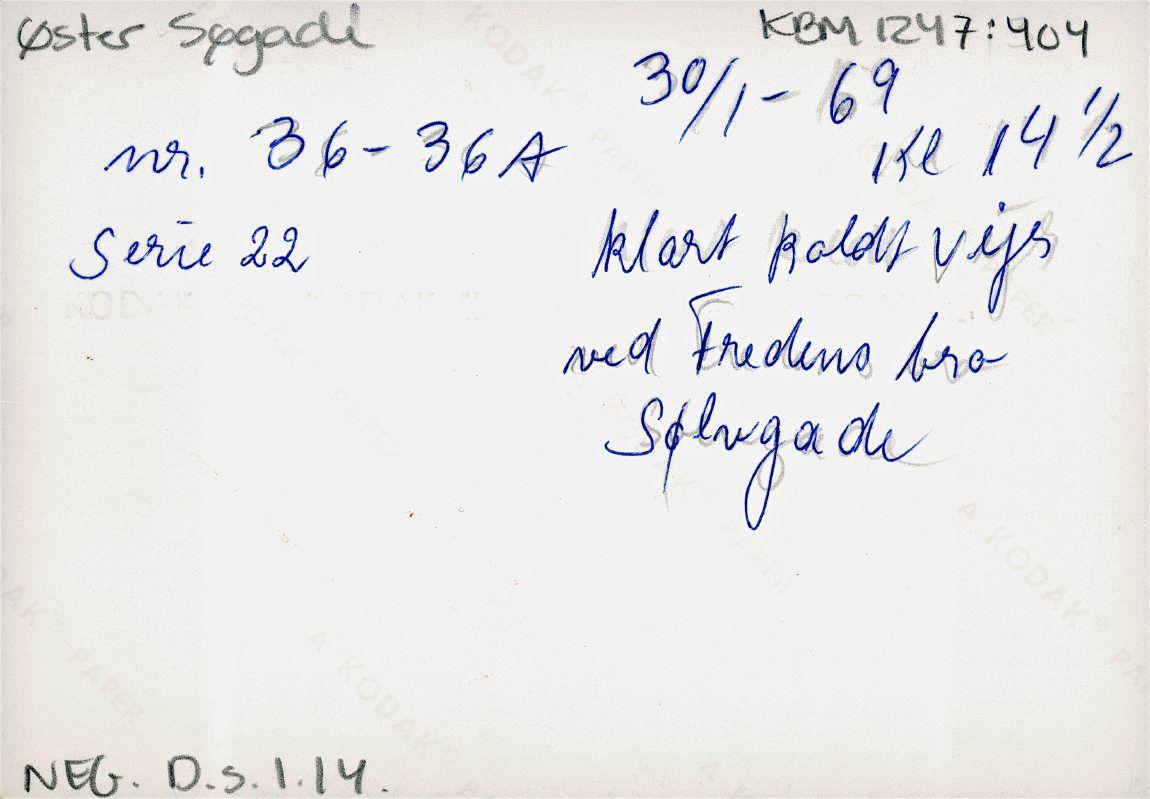 Øster Søgade
KBM 1247:404
30/1 - 69
Kl 14 1/2
nr. 36 - 36 A
Serie 22
klart koldt vejr
ved Fredens bro
Sølvgade
A KODAK® PAPER
NEG. D.s.1.14.